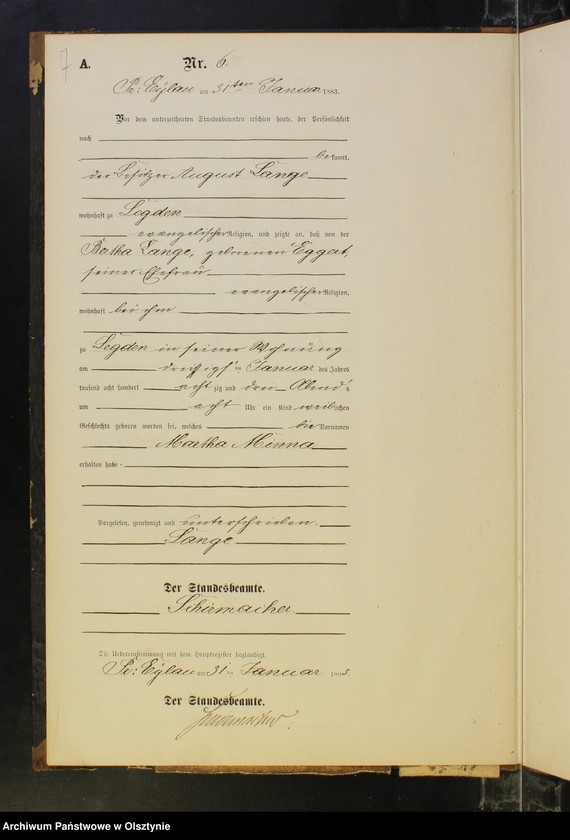 7
A. Nr. 6.
Pr: Eylau am 31ten Januar 1883.
Vor dem unterzeichneten Standesbeamten erschien heute, der Persönlichkeit
nach
bekannt,
der Besitzer August Lange
wohnhaft zu Legden
evangelischer Religion, und zeigte an, daß von der
Bertha Lange, geborenen Eggert,
seiner Ehefrau
evangelischer Religion,
wohnhaft bei ihm
zu Legden in seiner Wohnung
am dreißigsten Januar des Jahres
tausend acht hundert achtzig und drei Abends
um acht Uhr ein Kind weiblichen
Geschlechts geboren worden sei, welches die Vornamen
Martha Minna
erhalten habe
Vorgelesen, genehmigt und unterschrieben.
Lange
Der Standesbeamte.
Schumacher
Die Uebereinstimmung mit dem Hauptregister beglaubigt.
Pr: Eylau am 31ten Januar 1883.
Der Standesbeamte.
Schumacher.
Archiwum Państwowe w Olsztynie